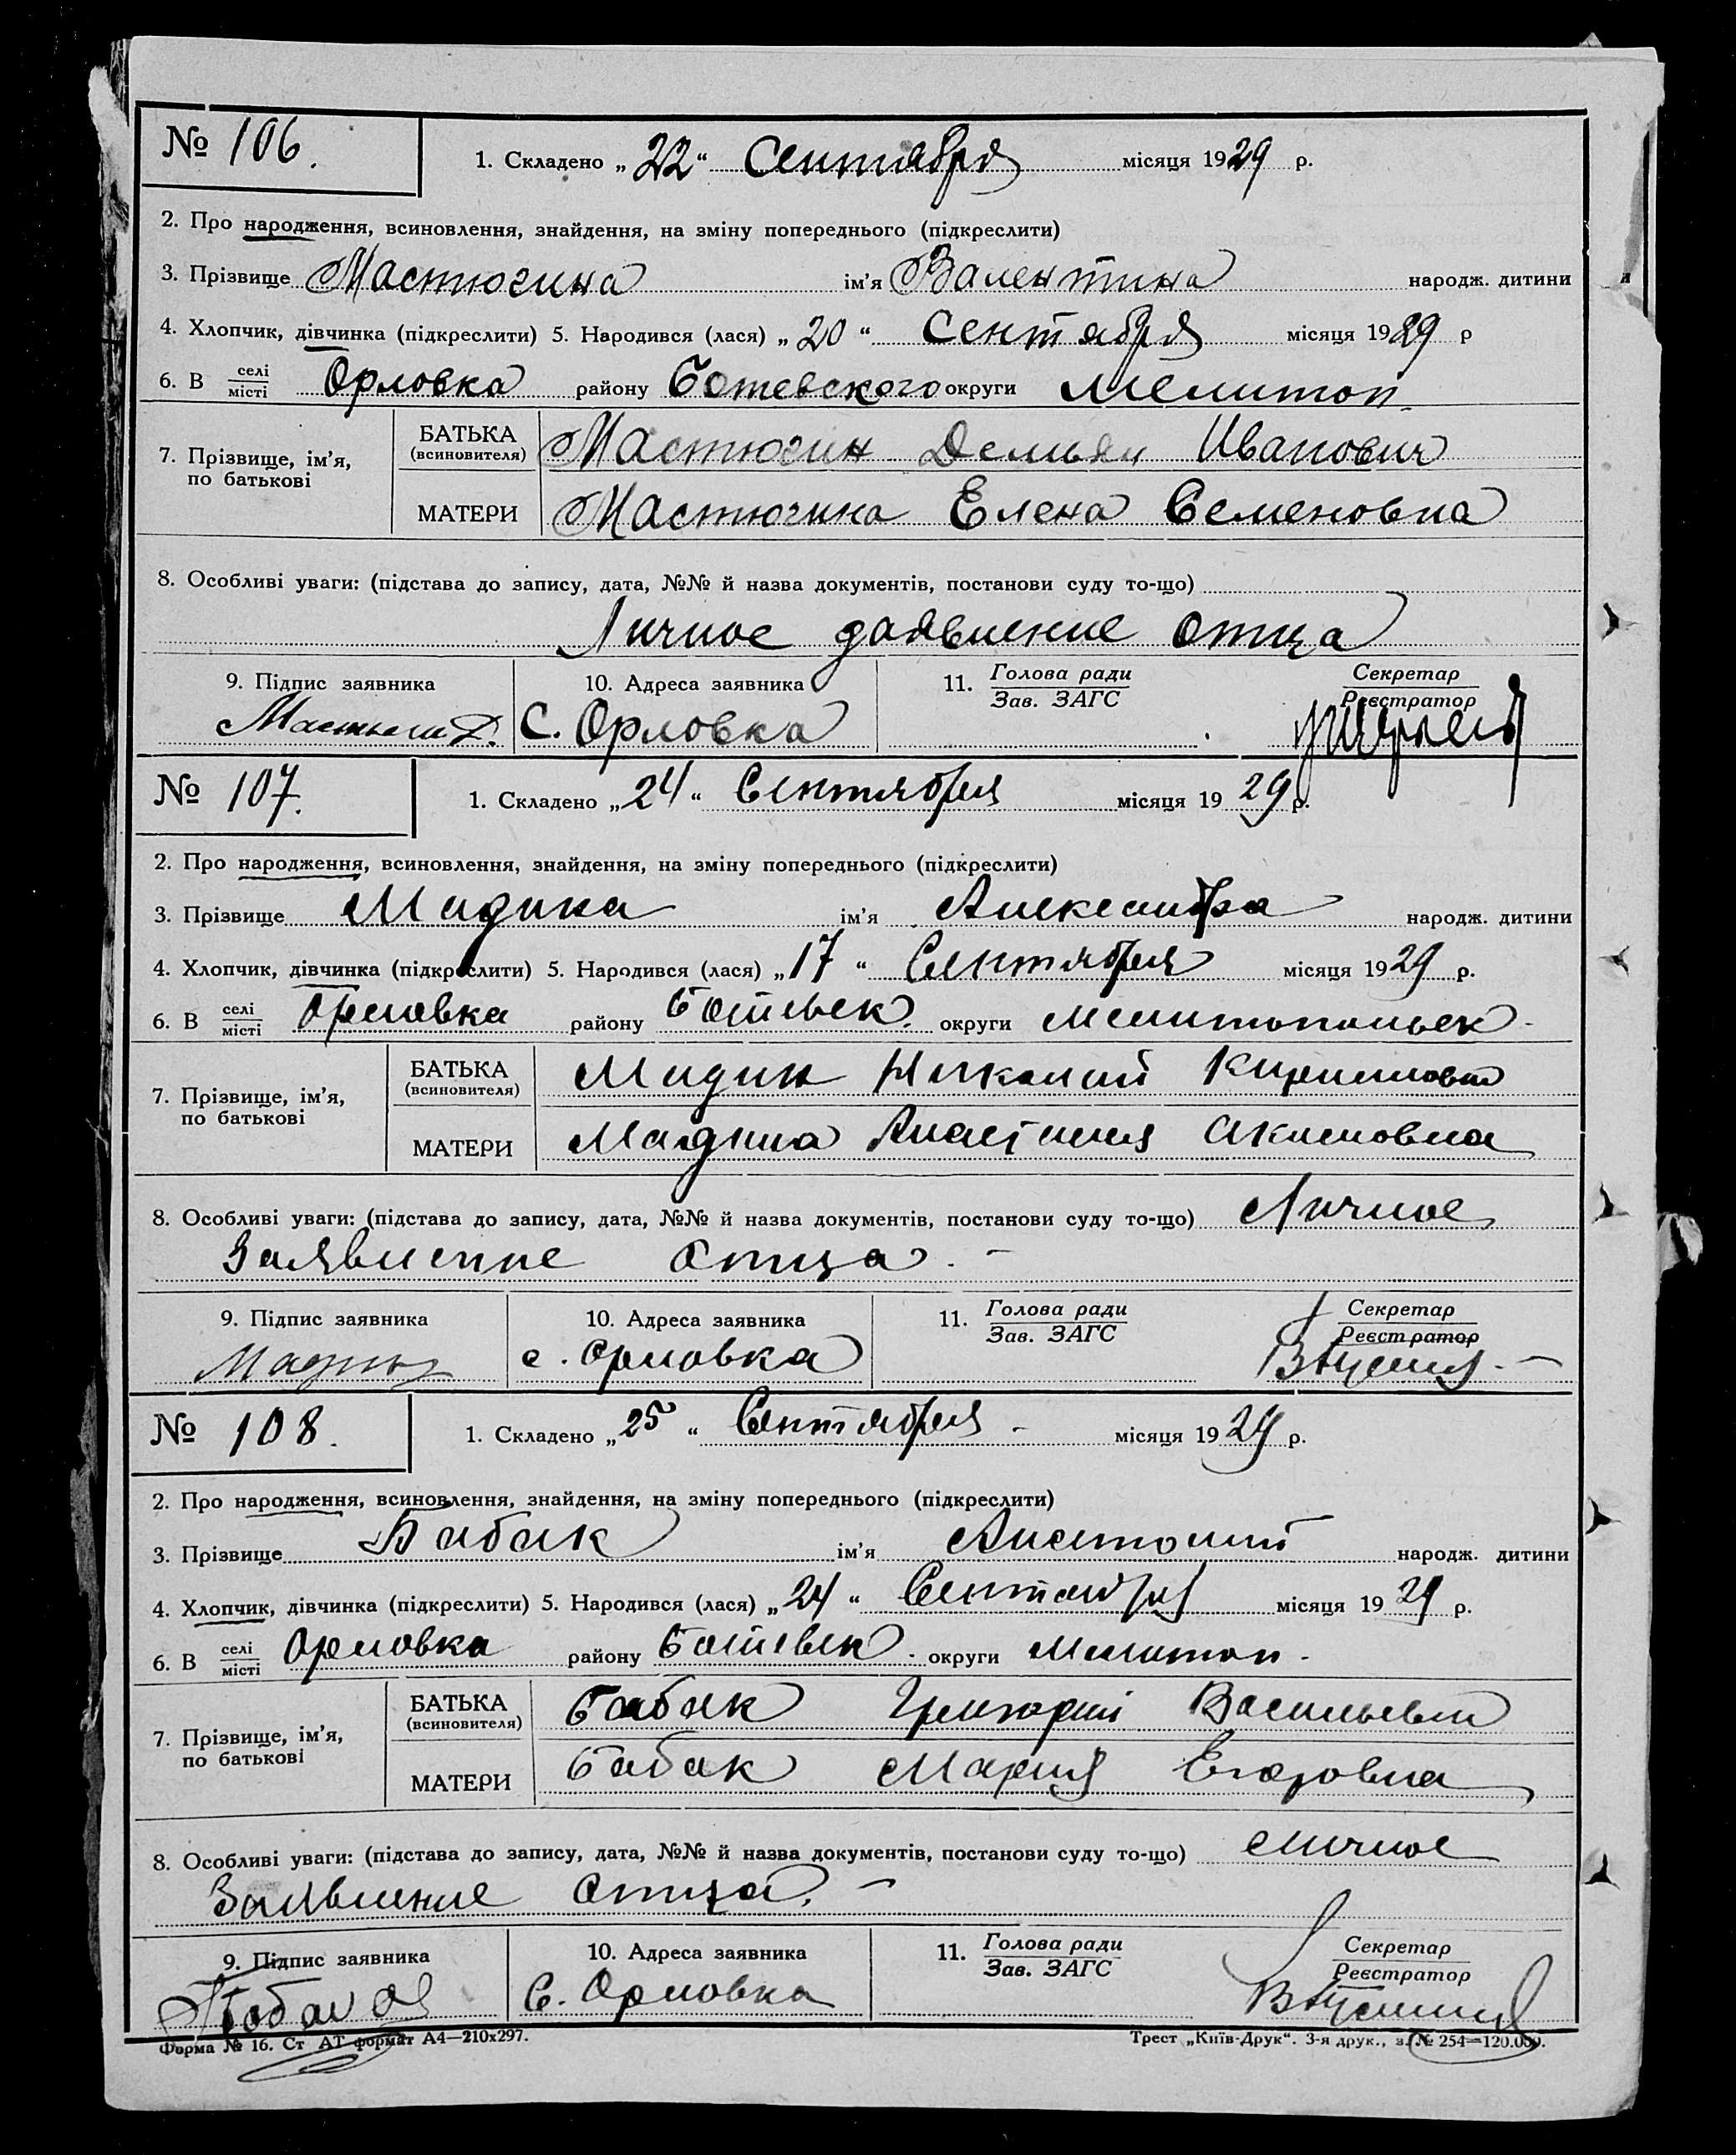 № 106.
1. Складено „22“ Сентября місяця 1929 р.
2. Про народження, всиновлення, знайдення, на зміну попереднього (підкреслити)
3. Прізвище Мастюгина ім'я Валентина народж. дитини
4. Хлопчик, дівчинка (підкреслити) 5. Народився (лася) „20“ Сентября місяця 1929 р
6. В селі місті Орловка району Ботевского округи Мелитоп.
7. Прізвище, ім'я, по батькові
БАТЬКА (всиновителя) Мастюгин Демьян Иванович
МАТЕРИ Мастюгина Елена Семеновна
8. Особливі уваги: (підстава до запису, дата, №№ й назва документів, постанови суду то-що)
Личное заявление отца
9. Підпис заявника 10. Адреса заявника 11. Голова ради Зав. ЗАГС Секретар Реєстратор
С. Орловка
№ 107.
1. Складено „24“ Сентября місяця 1929 р.
2. Про народження, всиновлення, знайдення, на зміну попереднього (підкреслити)
3. Прізвище ім'я Александра народж. дитини
4. Хлопчик, дівчинка (підкреслити) 5. Народився (лася) „17“ Сентября місяця 1929 р.
6. В селі місті Орловка району Ботевск. округи Мелитопольск.
7. Прізвище, ім'я, по батькові
БАТЬКА (всиновителя) Николай Кириллович
МАТЕРИ Анастасия Акимовна
8. Особливі уваги: (підстава до запису, дата, №№ й назва документів, постанови суду то-що) Личное
Заявление отца. –
9. Підпис заявника 10. Адреса заявника 11. Голова ради Зав. ЗАГС Секретар Реєстратор
с. Орловка
№ 108.
1. Складено „25“ Сентября - місяця 1929 р.
2. Про народження, всиновлення, знайдення, на зміну попереднього (підкреслити)
3. Прізвище Бабак ім'я Анатолий народж. дитини
4. Хлопчик, дівчинка (підкреслити) 5. Народився (лася) „24“ Сентября місяця 1929 р.
6. В селі місті Орловка району Ботевск. округи Мелитоп.
7. Прізвище, ім'я, по батькові
БАТЬКА (всиновителя) Бабак Григорий Васильевич
МАТЕРИ Бабак Мария Егоровна
8. Особливі уваги: (підстава до запису, дата, №№ й назва документів, постанови суду то-що) Личное
Заявление отца. –
9. Підпис заявника 10. Адреса заявника 11. Голова ради Зав. ЗАГС Секретар Реєстратор
С. Орловка
Форма № 16. Ст АТ формат А4—210х297. Трест „Київ-Друк“. 3-я друк., з. № 254—120.000.